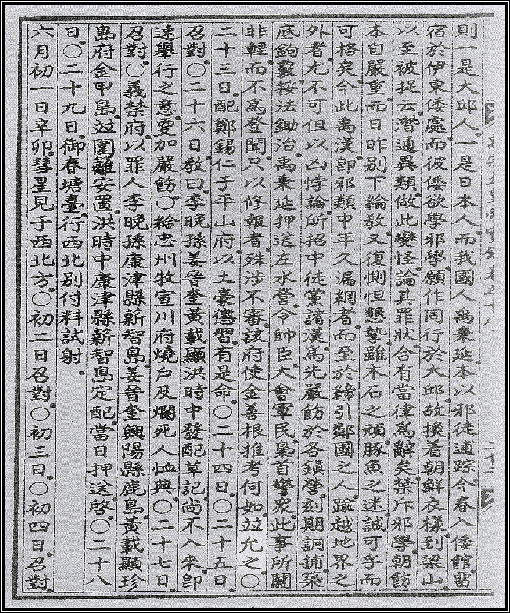 則一是大邱人一是日本人而我國人禹秉延本以邪徒逋踪今春入倭館留
宿於伊東倭處而彼倭欲學邪學願作同行於大邱故換着朝鮮衣樣到梁山
以至被捉云潛通異類做此變怪論其罪狀合有當律爲辭矣禁斥邪學朝飭
本自嚴重而日昨別下綸敎又復惻怛懇摯雖木石之頑豚魚之迷誠可孚而
可格矣今此禹漢卽邪類中年久漏網者而至於締引鄰國之人踰越地界之
外者尤不可但以凶悖論所招中徒黨諸漢爲先嚴飭於各鎭營刻期詗捕築
底鉤覈按法鋤治禹秉延押送左水營令帥臣大會軍民梟首警衆此事所關
非輕而不爲登聞只以修報者殊涉不審該府使金善根推考何如竝允之○
二十三日配鄭錫仁于平山府以土豪懲習有是命○二十四日○二十五日
召對○二十六日敎曰李晩孫姜晉奎黃載顯洪時中發配草記尙不入來卽
速擧行之意更加嚴飭○給忠州牧宣川府燒戶及爛死人恤典○二十七日
召對○義禁府以罪人李晩孫康津縣新智島姜晉奎興陽縣鹿島黃載顯珍
島府金甲島竝圍籬安置洪時中康津縣新智島定配當日押送啓○二十八
日○二十九日御春塘臺行西北別付料試射
六月初一日辛卯彗星見于西北方○初二日召對○初三日○初四日召對